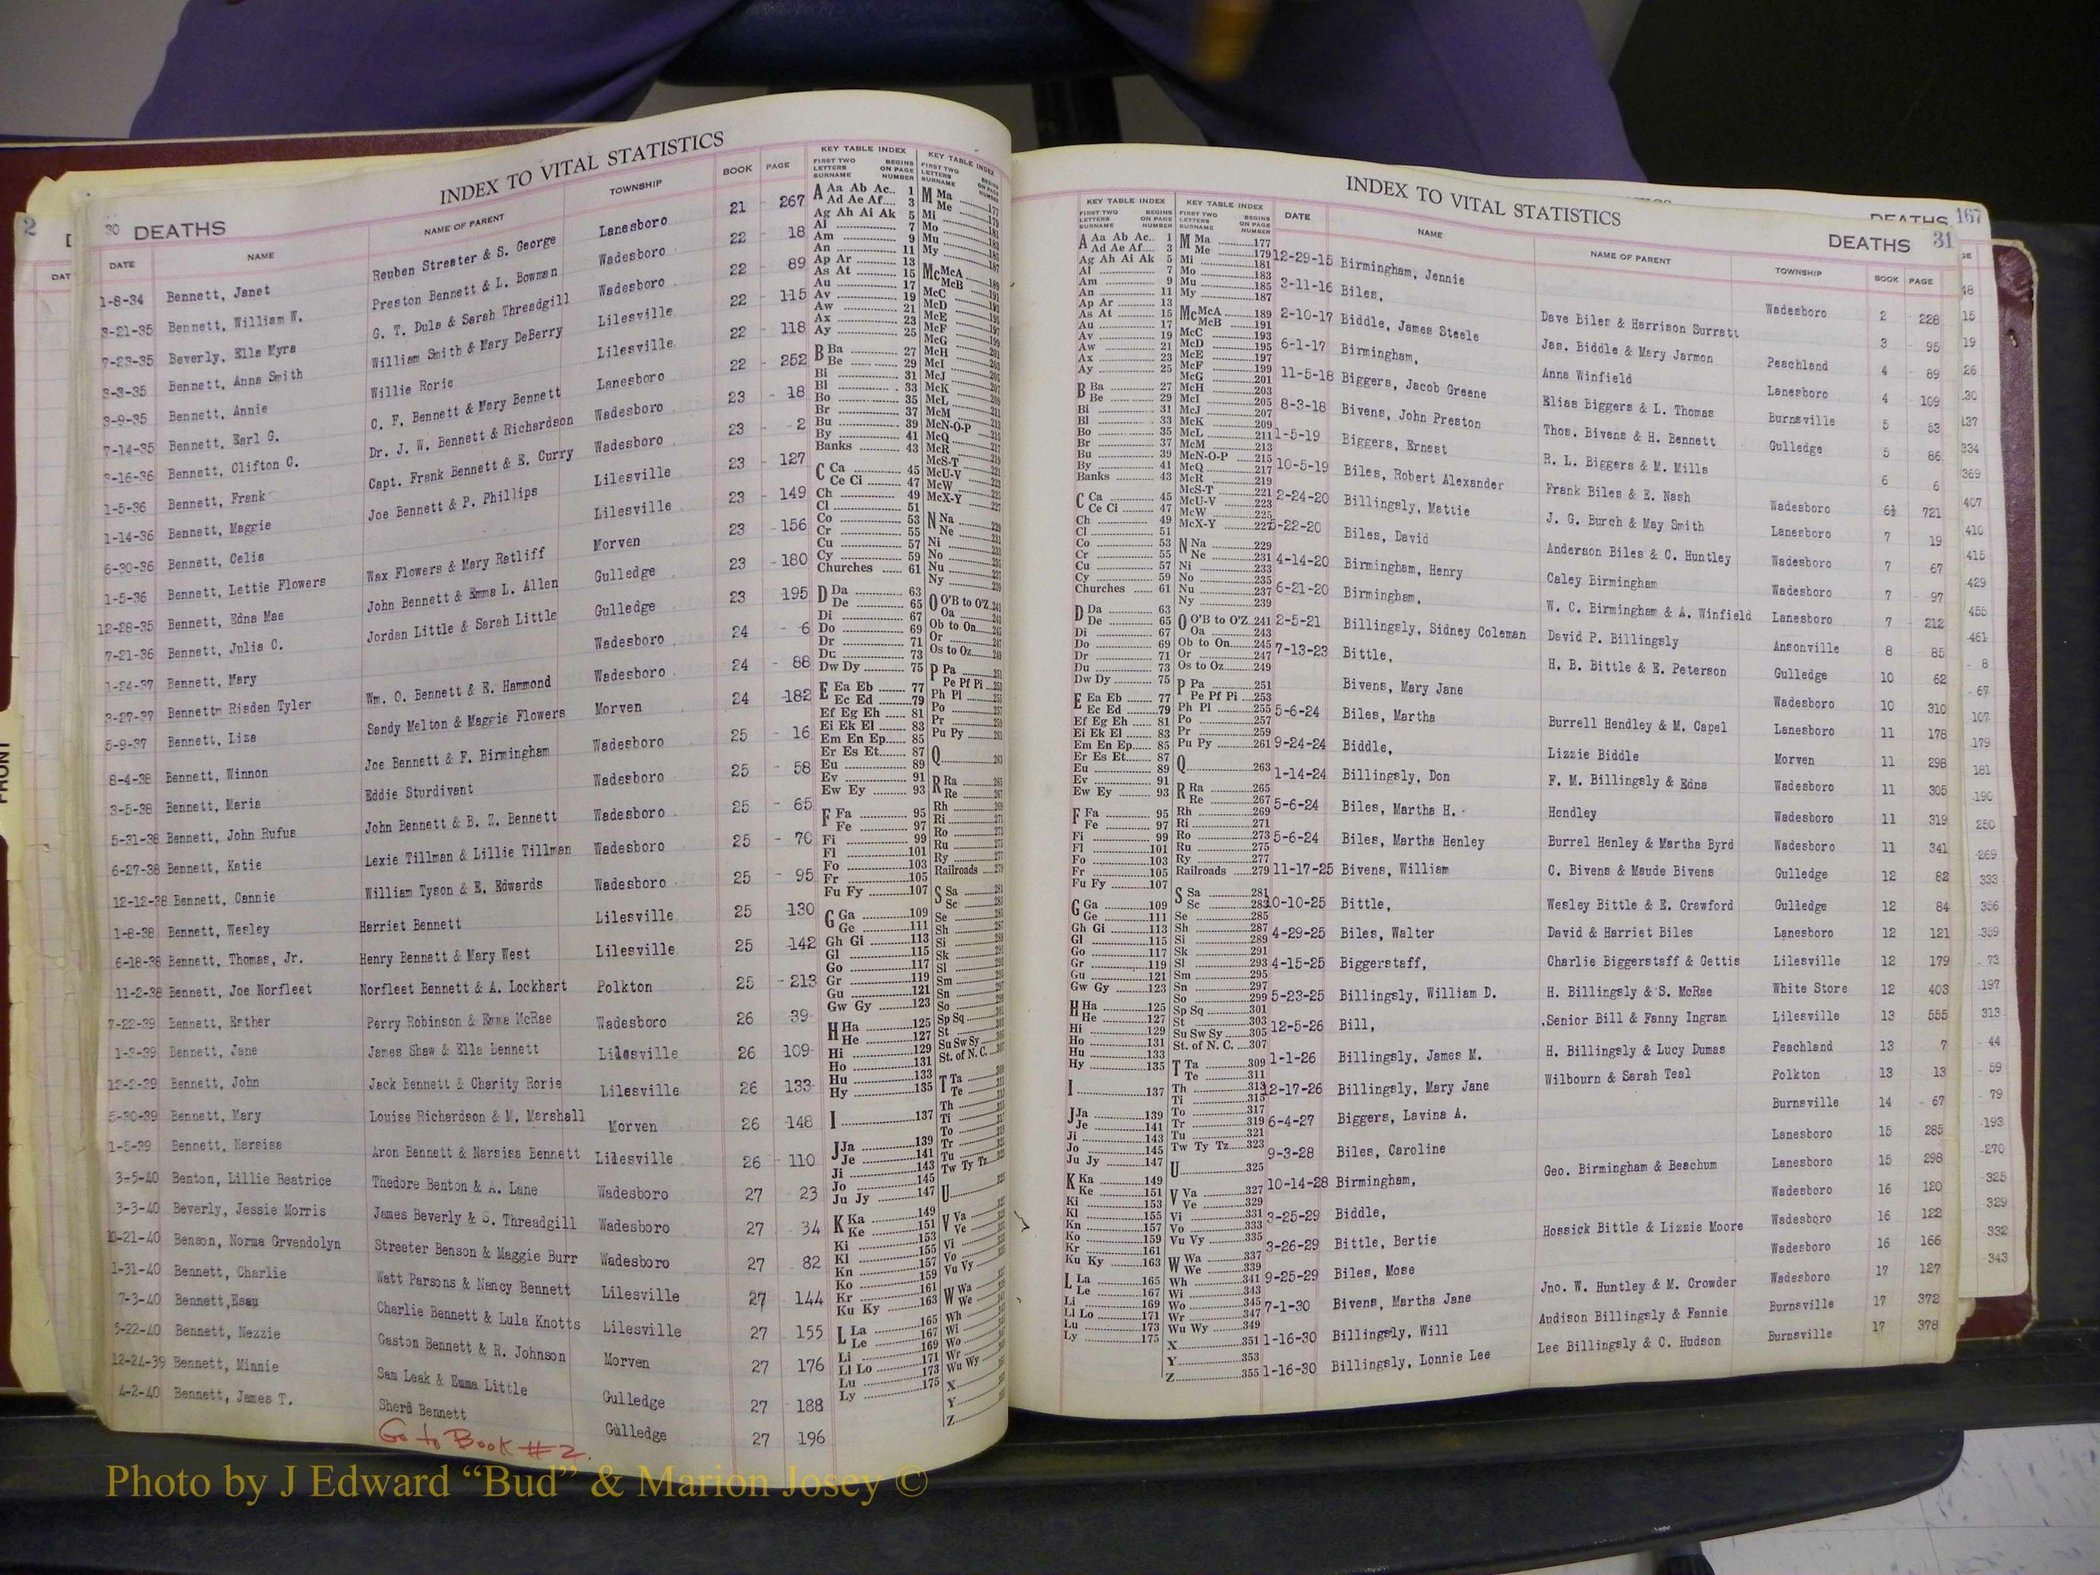 INDEX TO VITAL STATISTICS
30 DEATHS
DATE NAME NAME OF PARENT TOWNSHIP BOOK PAGE
1-8-34 Bennett, Janet Reuben Streater & S. George Lanesboro 21 267
3-21-35 Bennett, William W. Preston Bennett & L. Bowman Wadesboro 22 18
7-23-35 Beverly, Ella Myra G. T. Dula & Sarah Threadgill Wadesboro 22 89
3-3-35 Bennett, Anna Smith William Smith & Mary DeBerry Lilesville 22 115
3-9-35 Bennett, Annie Willie Rorie Lilesville 22 118
7-14-35 Bennett, Earl G. C. F. Bennett & Mary Bennett Lanesboro 22 252
2-16-36 Bennett, Clifton C. Dr. J. W. Bennett & Richardson Wadesboro 23 18
1-5-36 Bennett, Frank Capt. Frank Bennett & E. Curry Wadesboro 23 2
1-14-36 Bennett, Maggie Joe Bennett & P. Phillips Lilesville 23 127
6-30-36 Bennett, Celia Lilesville 23 149
1-5-36 Bennett, Lettie Flowers Wax Flowers & Mary Ratliff Morven 23 156
12-28-35 Bennett, Edna Mae John Bennett & Emma L. Allen Gulledge 23 180
7-21-36 Bennett, Julia C. Jordan Little & Sarah Little Gulledge 23 195
1-24-37 Bennett, Mary Wadesboro 24 6
3-27-37 Bennettm Risden Tyler Wm. O. Bennett & E. Hammond Wadesboro 24 88
5-9-37 Bennett, Liza Sandy Melton & Maggie Flowers Morven 24 182
8-4-38 Bennett, Winnon Joe Bennett & F. Birmingham Wadesboro 25 16
3-5-38 Bennett, Maria Eddie Sturdivant Wadesboro 25 58
5-31-38 Bennett, John Rufus John Bennett & B. Z. Bennett Wadesboro 25 65
6-27-38 Bennett, Katie Lexie Tillman & Lillie Tillman Wadesboro 25 70
12-12-38 Bennett, Cannie William Tyson & E. Edwards Wadesboro 25 95
1-8-38 Bennett, Wesley Harriet Bennett Lilesville 25 130
6-18-38 Bennett, Thomas, Jr. Henry Bennett & Mary West Lilesville 25 142
11-2-38 Bennett, Joe Norfleet Norfleet Bennett & A. Lockhart Polkton 25 213
7-22-39 Bennett, Esther Perry Robinson & Emma McRae Wadesboro 26 39
1-3-39 Bennett, Jane James Shaw & Ella Bennett Lilesville 26 109
12-2-39 Bennett, John Jack Bennett & Charity Rorie Lilesville 26 133
5-30-39 Bennett, Mary Louise Richardson & M. Marshall Morven 26 148
1-5-39 Bennett, Narsisa Aron Bennett & Narsisa Bennett Lilesville 26 110
3-5-40 Benton, Lillie Beatrice Thedore Benton & A. Lane Wadesboro 27 23
3-3-40 Beverly, Jessie Morris James Beverly & S. Threadgill Wadesboro 27 34
10-21-40 Benson, Norma Grvendolyn Streeter Benson & Maggie Burr Wadesboro 27 82
1-31-40 Bennett, Charlie Watt Parsons & Nancy Bennett Lilesville 27 144
7-3-40 Bennett,Esau Charlie Bennett & Lula Knotts Lilesville 27 155
5-22-40 Bennett, Nezzie Gaston Bennett & R. Johnson Morven 27 176
12-24-39 Bennett, Minnie Sam Leak & Emma Little Gulledge 27 188
4-2-40 Bennett, James T. Sherd Bennett Gulledge 27 196
Go to Book #2.
KEY TABLE INDEX
FIRST TWO LETTERS SURNAME BEGINS ON PAGE NUMBER
A Aa Ab Ac.. 1
Ad Ae Af.... 3
Ag Ah Ai Ak 5
Al 7
Am 9
An 11
Ap Ar 13
As At 15
Au 17
Av 19
Aw 21
Ax 23
Ay 25
B Ba 27
Be 29
Bi 31
Bl 33
Bo 35
Br 37
Bu 39
By 41
Banks 43
C Ca 45
Ce Ci 47
Ch 49
Cl 51
Co 53
Cr 55
Cu 57
Cy 59
Churches 61
D Da 63
De 65
Di 67
Do 69
Dr 71
Du 73
Dw Dy 75
E Ea Eb 77
Ec Ed 79
Ef Eg Eh 81
Ei Ek El 83
Em En Ep 85
Er Es Et 87
Eu 89
Ev 91
Ew Ey 93
F Fa 95
Fe 97
Fi 99
Fl 101
Fo 103
Fr 105
Fu Fy 107
G Ga 109
Ge 111
Gh Gi 113
Gl 115
Go 117
Gr 119
Gu 121
Gw Gy 123
H Ha 125
He 127
Hi 129
Ho 131
Hu 133
Hy 135
I 137
J Ja 139
Je 141
Ji 143
Jo 145
Ju Jy 147
K Ka 149
Ke 151
Ki 153
Kl 155
Kn 157
Ko 159
Kr 161
Ku Ky 163
L La 165
Le 167
Li 169
Ll Lo 171
Lu 173
Ly 175
INDEX TO VITAL STATISTICS
DEATHS 167
DEATHS 31
KEY TABLE INDEX
M Ma 177
Me 179
Mi 181
Mo 183
Mu 185
My 187
Mc McA 189
McB 191
McC 193
McD 195
McE 197
McF 199
McG 201
McH 203
McI 205
McJ 207
McK 209
McL 211
McM 213
McN-O-P 215
McQ 217
McR 219
McS-T 221
McU-V 223
McW 225
McX-Y 227
N Na 229
Ne 231
Ni 233
No 235
Nu 237
Ny 239
O O'B to O'Z 241
Oa 243
Ob to On 245
Or 247
Os to Oz 249
P Pa 251
Pe Pf Pi 253
Ph Pl 255
Po 257
Pr 259
Pu Py 261
Q 263
R Ra 265
Re 267
Rh 269
Ri 271
Ro 273
Ru 275
Ry 277
Railroads 279
S Sa 281
Sc 283
Se 285
Sh 287
Si 289
Sk 291
Sl 293
Sm 295
Sn 297
So 299
Sp Sq 301
St 303
Su Sw Sy 305
St. of N. C. 307
T Ta 309
Te 311
Th 313
Ti 315
To 317
Tr 319
Tu 321
Tw Ty Tz 323
U 325
V Va 327
Ve 329
Vi 331
Vo 333
Vu Vy 335
W Wa 337
We 339
Wh 341
Wi 343
Wo 345
Wr 347
Wu Wy 349
X 351
Y 353
Z 355
DATE NAME NAME OF PARENT TOWNSHIP BOOK PAGE
12-29-15 Birmingham, Jennie Wadesboro 2 228
3-11-16 Biles, Dave Biles & Harrison Surratt 3 95
2-10-17 Biddle, James Steele Jas. Biddle & Mary Jarmon Peachland 4 89
6-1-17 Birmingham, Anna Winfield Lanesboro 4 109
11-5-18 Biggers, Jacob Greene Elias Biggers & L. Thomas Burnsville 5 53
8-3-18 Bivens, John Preston Thos. Bivens & H. Bennett Gulledge 5 86
1-5-19 Biggers, Ernest R. L. Biggers & M. Mills 6 6
10-5-19 Biles, Robert Alexander Frank Biles & E. Nash Wadesboro 6½ 721
2-24-20 Billingsly, Mattie J. G. Burch & May Smith Lanesboro 7 19
5-22-20 Biles, David Anderson Biles & C. Huntley Wadesboro 7 67
4-14-20 Birmingham, Henry Caley Birmingham Wadesboro 7 97
6-21-20 Birmingham, W. C. Birmingham & A. Winfield Lanesboro 7 212
2-5-21 Billingsly, Sidney Coleman David P. Billingsly Ansonville 8 85
7-13-23 Bittle, H. B. Bittle & E. Peterson Gulledge 10 62
Bivens, Mary Jane Wadesboro 10 310
5-6-24 Biles, Martha Burrell Hendley & M. Capel Lanesboro 11 178
9-24-24 Biddle, Lizzie Biddle Morven 11 298
1-14-24 Billingsly, Don F. M. Billingsly & Edna Wadesboro 11 305
5-6-24 Biles, Martha H. Hendley Wadesboro 11 319
5-6-24 Biles, Martha Henley Burrel Henley & Martha Byrd Wadesboro 11 341
11-17-25 Bivens, William C. Bivens & Maude Bivens Gulledge 12 82
10-10-25 Bittle, Wesley Bittle & E. Crawford Gulledge 12 84
4-29-25 Biles, Walter David & Harriet Biles Lanesboro 12 121
4-15-25 Biggerstaff, Charlie Biggerstaff & Gettis Lilesville 12 179
5-23-25 Billingsly, William D. H. Billingsly & S. McRae White Store 12 403
12-5-26 Bill, Senior Bill & Fanny Ingram Lilesville 13 555
1-1-26 Billingsly, James M. H. Billingsly & Lucy Dumas Peachland 13 7
12-17-26 Billingsly, Mary Jane Wilbourn & Sarah Teal Polkton 13 13
6-4-27 Biggers, Lavina A. Burnsville 14 67
9-3-28 Biles, Caroline Lanesboro 15 285
10-14-28 Birmingham, Geo. Birmingham & Beachum Lanesboro 15 298
3-25-29 Biddle, Wadesboro 16 120
3-26-29 Bittle, Bertie Hossick Bittle & Lizzie Moore Wadesboro 16 122
9-25-29 Biles, Mose Wadesboro 16 166
7-1-30 Bivens, Martha Jane Jno. W. Huntley & M. Crowder Wadesboro 17 127
1-16-30 Billingsly, Will Audison Billingsly & Fannie Burnsville 17 372
1-16-30 Billingsly, Lonnie Lee Lee Billingsly & C. Hudson Burnsville 17 378
Photo by J Edward “Bud” & Marion Josey ©